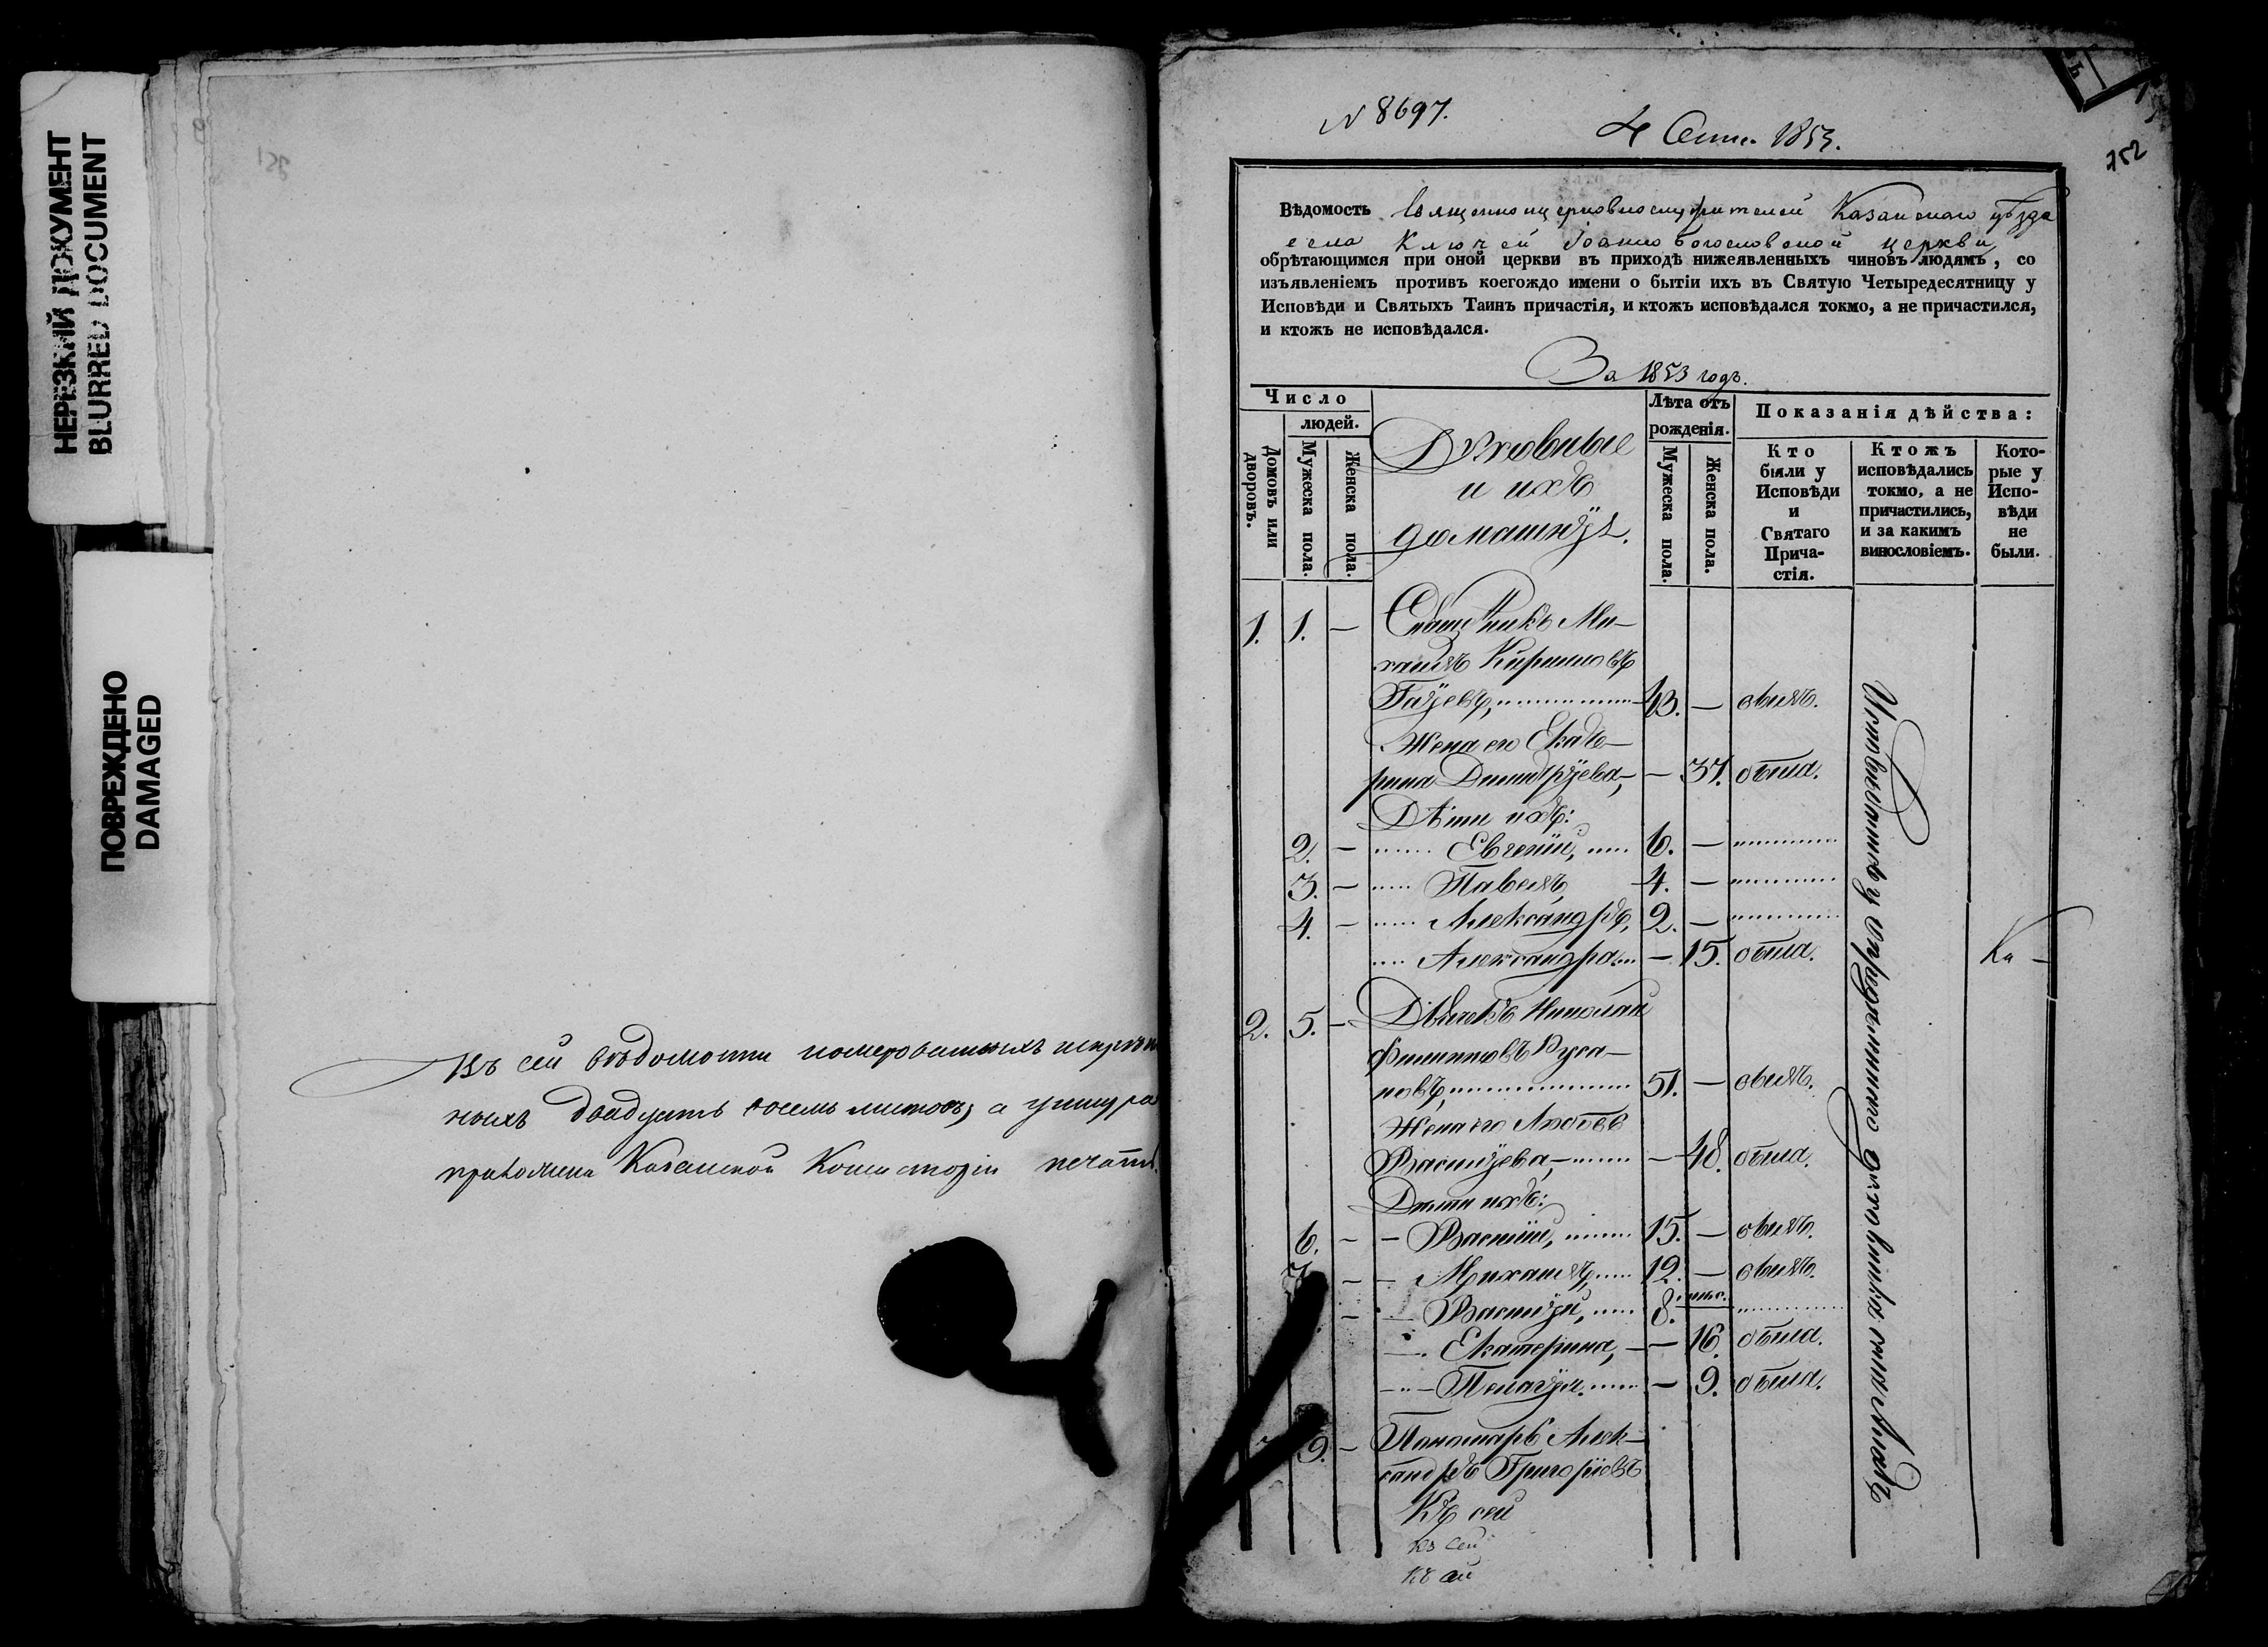 НЕРЕЗКИЙ ДОКУМЕНТ
BLURRED DOCUMENT
ПОВРЕЖДЕНО
DAMAGED
Въ сей вѣдомости номерованныхъ
ныхъ двадцать восемь листовъ, а
приложена Казанской Консисторіи печать.
N 8697.
4 Сент. 1853.
752
Вѣдомость Священноцерковнослужителей Казанскаго уѣзда
села Ключей Іоанно Богословской церкви,
обрѣтающимся при оной церкви въ приходѣ нижеявленныхъ чиновъ людямъ, со
изъявленіемъ противъ коегождо имени о бытіи ихъ въ Святую Четыредесятницу у
Исповѣди и Святыхъ Таинъ причастія, и ктожъ исповѣдался токмо, а не причастился,
и ктожъ не исповѣдался.
За 1853 годъ.
Число
людей.
Домовъ или дворовъ.
Мужеска пола.
Женска пола.
Духовные
и ихъ
домашніе.
Лѣта отъ
рожденія.
Мужеска пола.
Женска пола.
Показанія дѣйства:
Кто
были у
Исповѣди
и
Святаго
Прича-
стія.
Ктожъ
исповѣдались
токмо, а не
причастились,
и за какимъ
винословіемъ.
Кото-
рые у
Испо-
вѣди
не
были.
1. 1. — Священникъ Ми-
хаилъ Кириловъ
43. — былъ.
Жена его Екате-
рина Димитріева, — 37. была.
Дѣти ихъ:
2. — Евгеній, 6. —
3. — Павелъ, 4. —
4. — Александръ, 2. —
Александра — 15. была.
Ка —
2. 5. — Дьячекъ Николай
Филипповъ Руса-
новъ, 51. — былъ.
Жена его Любовь
Васильева, — 48. была.
Дѣти ихъ:
6. — Василій, 15. — былъ.
7. — Михаилъ, 12. — былъ.
— 8.
Екатерина, — 16. была.
Пелагія — 9. была.
9. — Пономарь Алек-
сандръ Григорьевъ
Къ сей
къ сей
къ сей